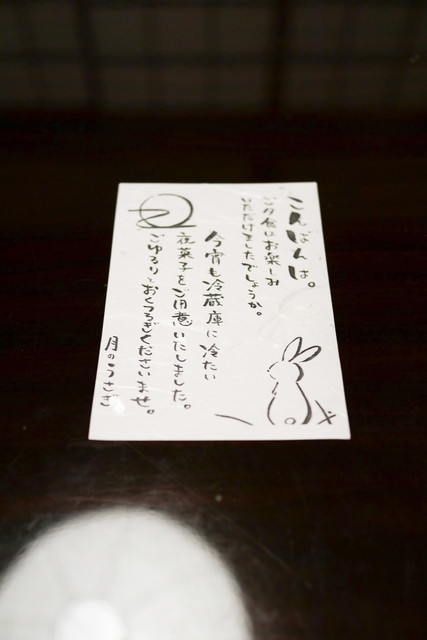 こんばんは。
ご夕食はお楽しみ
いただけましたでしょうか。
今宵も冷蔵庫に冷たい
夜菓子をご用意いたしました。
ごゆるりとおくつろぎくださいませ。
月のうさぎ